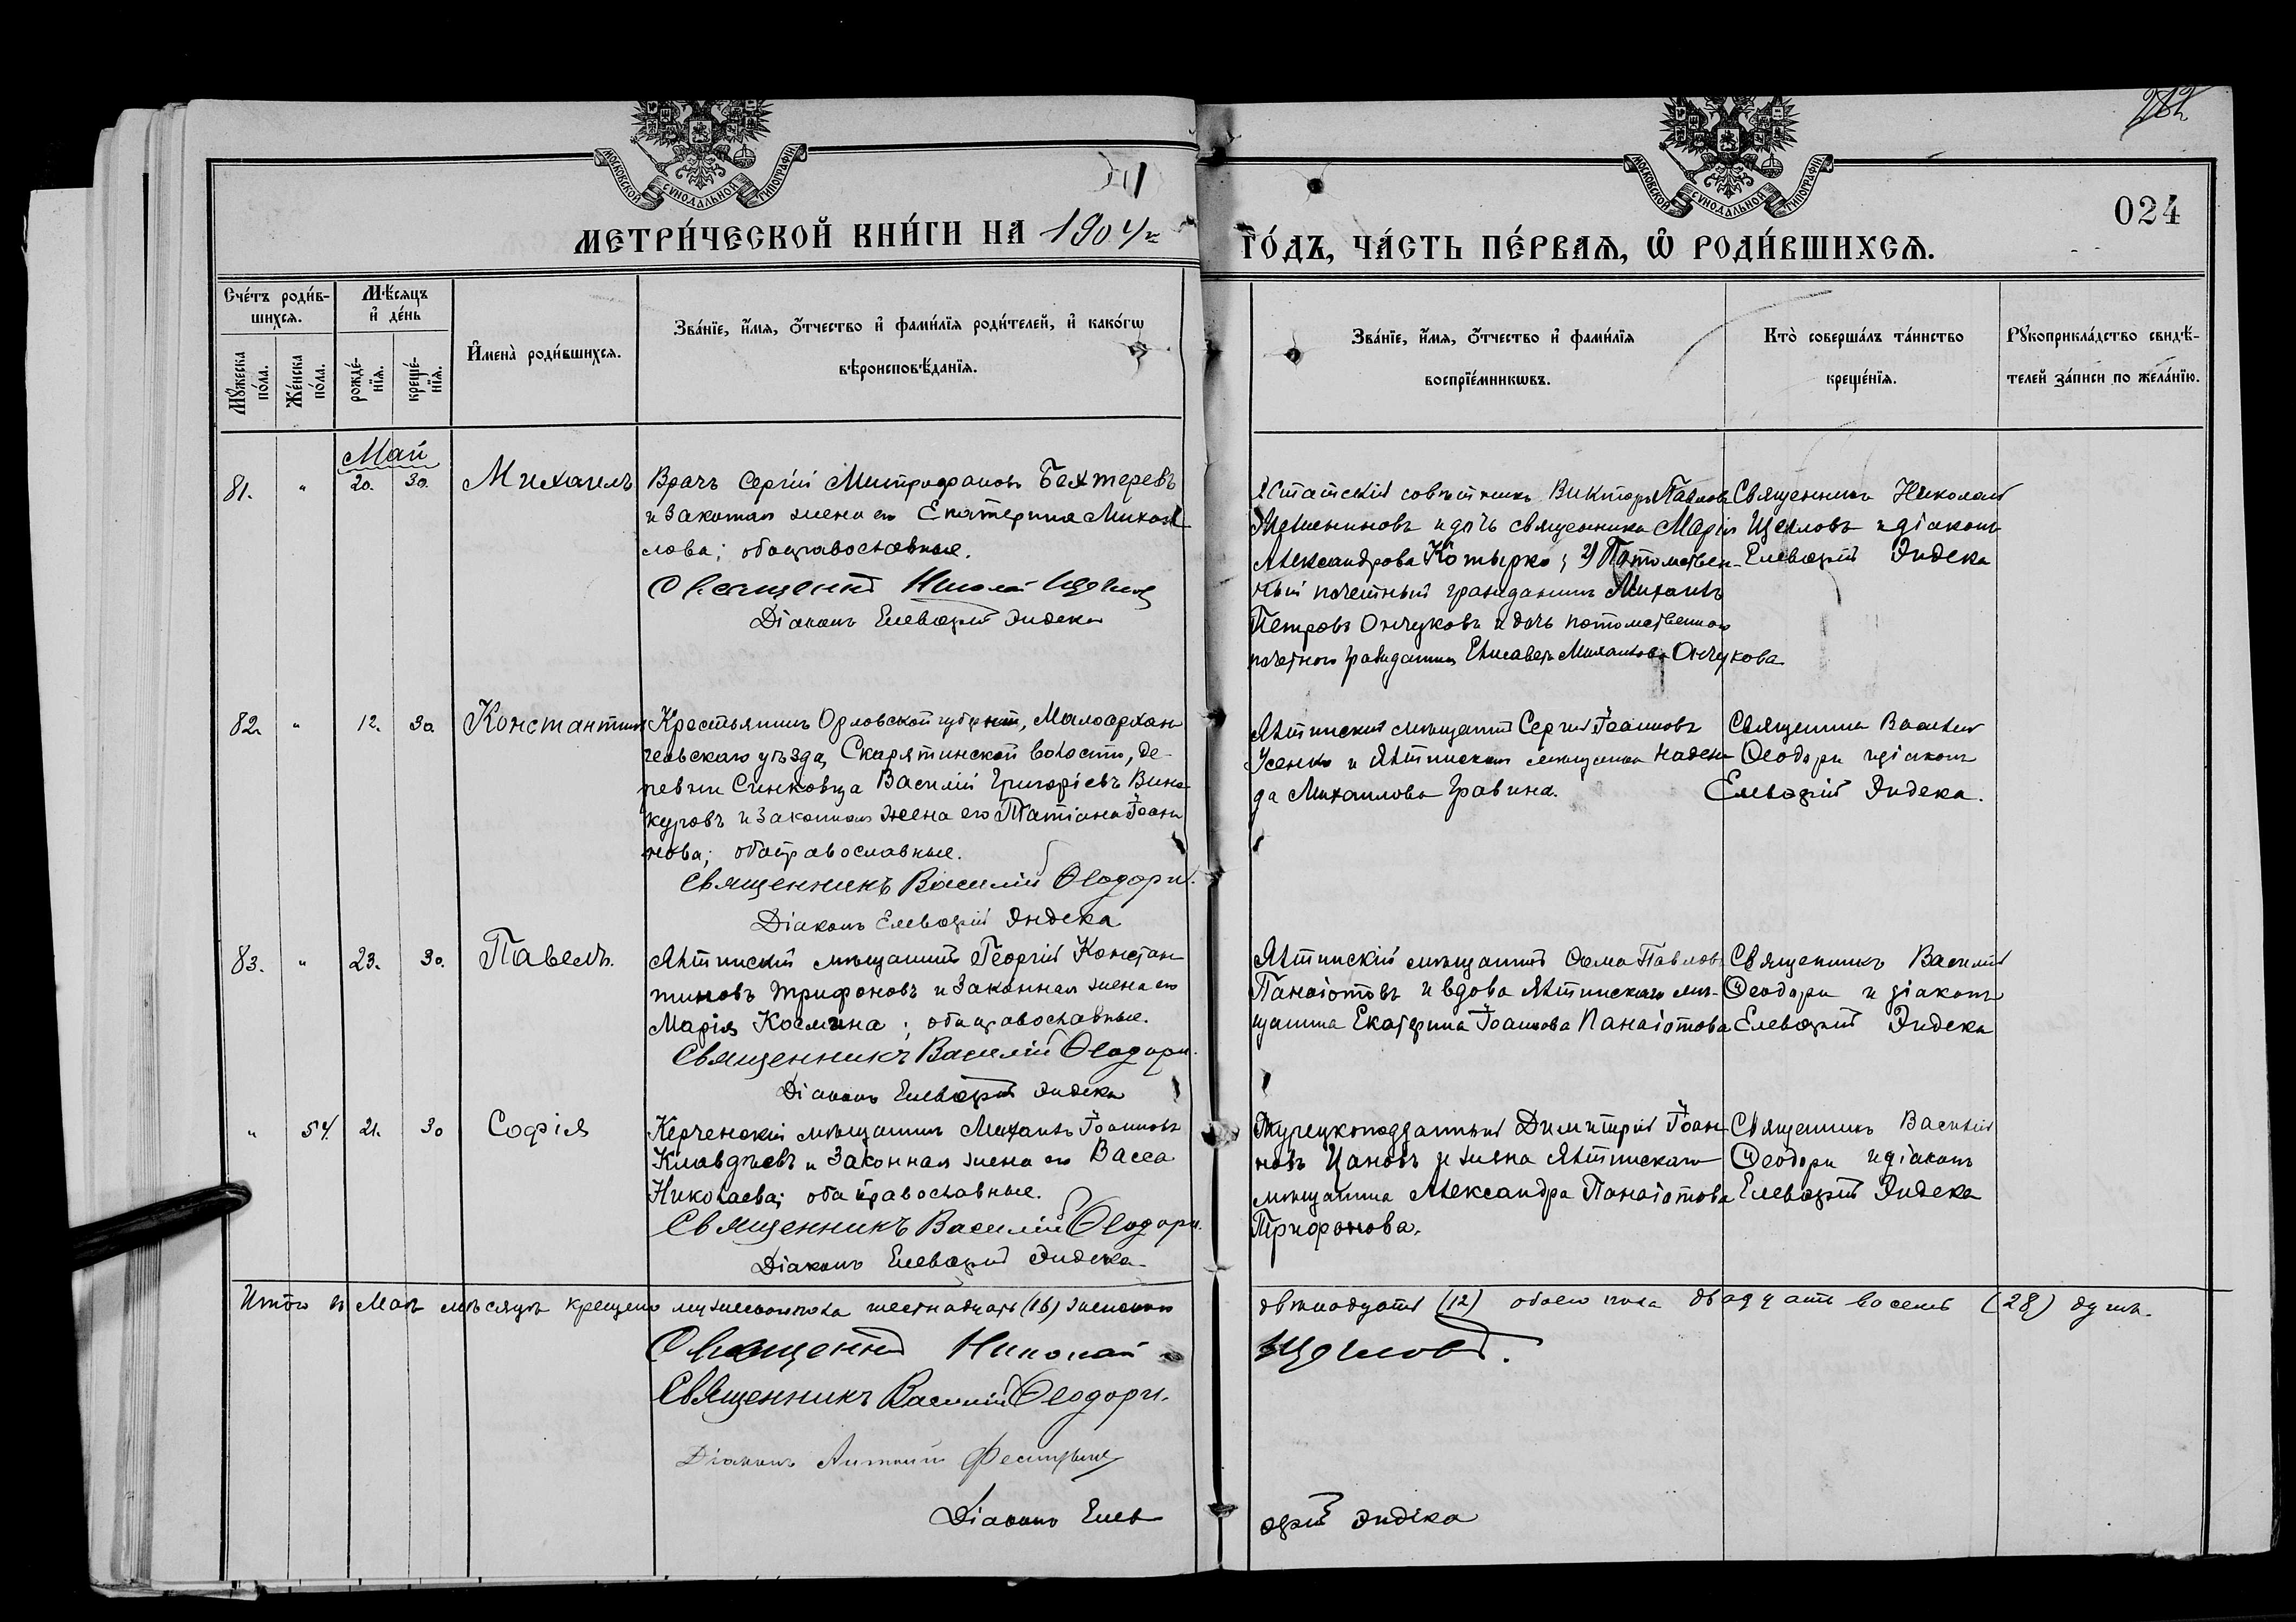 282
МОСКОВСКОЙ СѴНОДАЛЬНОЙ ТИПОГРАФІИ
МОСКОВСКОЙ СѴНОДАЛЬНОЙ ТИПОГРАФІИ
024
МЕТРИ́ЧЕСКОЙ КНИ́ГИ НА 1904 ГО́ДЪ, ЧА́СТЬ ПЕ́РВАѦ, Ѡ҆ РОДИ́ВШИХСѦ.
Сче́тъ роди́в-
шихсѧ.
Мꙋ́жеска по́ла.
Же́нска по́ла.
Мѣ́сѧцъ
и҆ де́нь
рожде́-
нїѧ.
креще́-
нїѧ.
И҆мена̀ роди́вшихсѧ.
Зва́нїе, и҆́мѧ, ѻ҆́тчество и҆ фами́лїѧ роди́телей, и҆ како́гѡ
вѣроисповѣ́данїѧ.
Зва́нїе, и҆́мѧ, ѻ҆́тчество и҆ фами́лїѧ
воспрїе́мникѡвъ.
Кто̀ соверша́лъ та́инство
креще́нїѧ.
Рꙋкоприкла́дство свидѣ́-
телей за́писи по жела́нїю.
Май
81. " 20. 30. Михаилъ
Врачъ Сергій Митрофановъ Бехтеревъ
и законная жена его Екатерина Михаи-
лова; оба православные.
Священникъ Николай Щегловъ
Діаконъ Елевѳерій Эндека
Статскій совѣтникъ Викторъ Павловъ
и дочь священника Марія
Александрова Котырко; 2) Потомствен-
ный почетный гражданинъ Михаилъ
Петровъ Ончуковъ и дочь потомственнаго
почетнаго гражданина Елисавета Михаилова Ончукова
Священникъ Николай
Щегловъ и діаконъ
Елевѳерій Эндека
82. " 12. 30. Константинъ
Крестьянинъ Орловской губерніи, Малоархан-
гельскаго уѣзда, Скарятинской волости, де-
ревни Синковца Василій Григоріевъ Вино-
куровъ и законная жена его Татіана Іоан-
нова; оба православные.
Священникъ Василій Ѳеодори.
Діаконъ Елевѳерій Эндека
Ялтинскій мѣщанинъ Сергій Іоанновъ
Усенко и Ялтинская мѣщанка Надеж-
да Михаилова Гравина.
Священникъ Василій
Ѳеодори и діаконъ
Елевѳерій Эндека.
83. " 23. 30. Павелъ.
Ялтинскій мѣщанинъ Георгій Констан-
тиновъ Трифоновъ и законная жена его
Марія Космина; оба православные.
Священникъ Василій Ѳеодори.
Діаконъ Елевѳерій Эндека
Ялтинскій мѣщанинъ Ѳома Павловъ
Панаіотовъ и вдова Ялтинскаго мѣ-
щанина Екатерина Іоаннова Панаіотова
Священникъ Василій
Ѳеодори и діаконъ
Елевѳерій Эндека
" 54. 21. 30 Софія
Керченскій мѣщанинъ Михаилъ Іоанновъ
Клавдіевъ и законная жена его Васса
Николаева; оба православные.
Священникъ Василій Ѳеодори.
Діаконъ Елевѳерій Эндека
Турецкоподданный Димитрій Іоан-
новъ Цановъ и жена Ялтинскаго
мѣщанина Александра Панаіотова
Трифонова.
Священникъ Василій
Ѳеодори и діаконъ
Елевѳерій Эндека
Итого въ Маѣ мѣсяцѣ крещено мужескаго пола шестнадцать (16) женскаго двѣнадцать (12) обоего пола двадцать восемь (28) душъ.
Священникъ Николай Щегловъ.
Священникъ Василій Ѳеодори.
Діаконъ Антоній
Діаконъ Елевѳерій Эндека